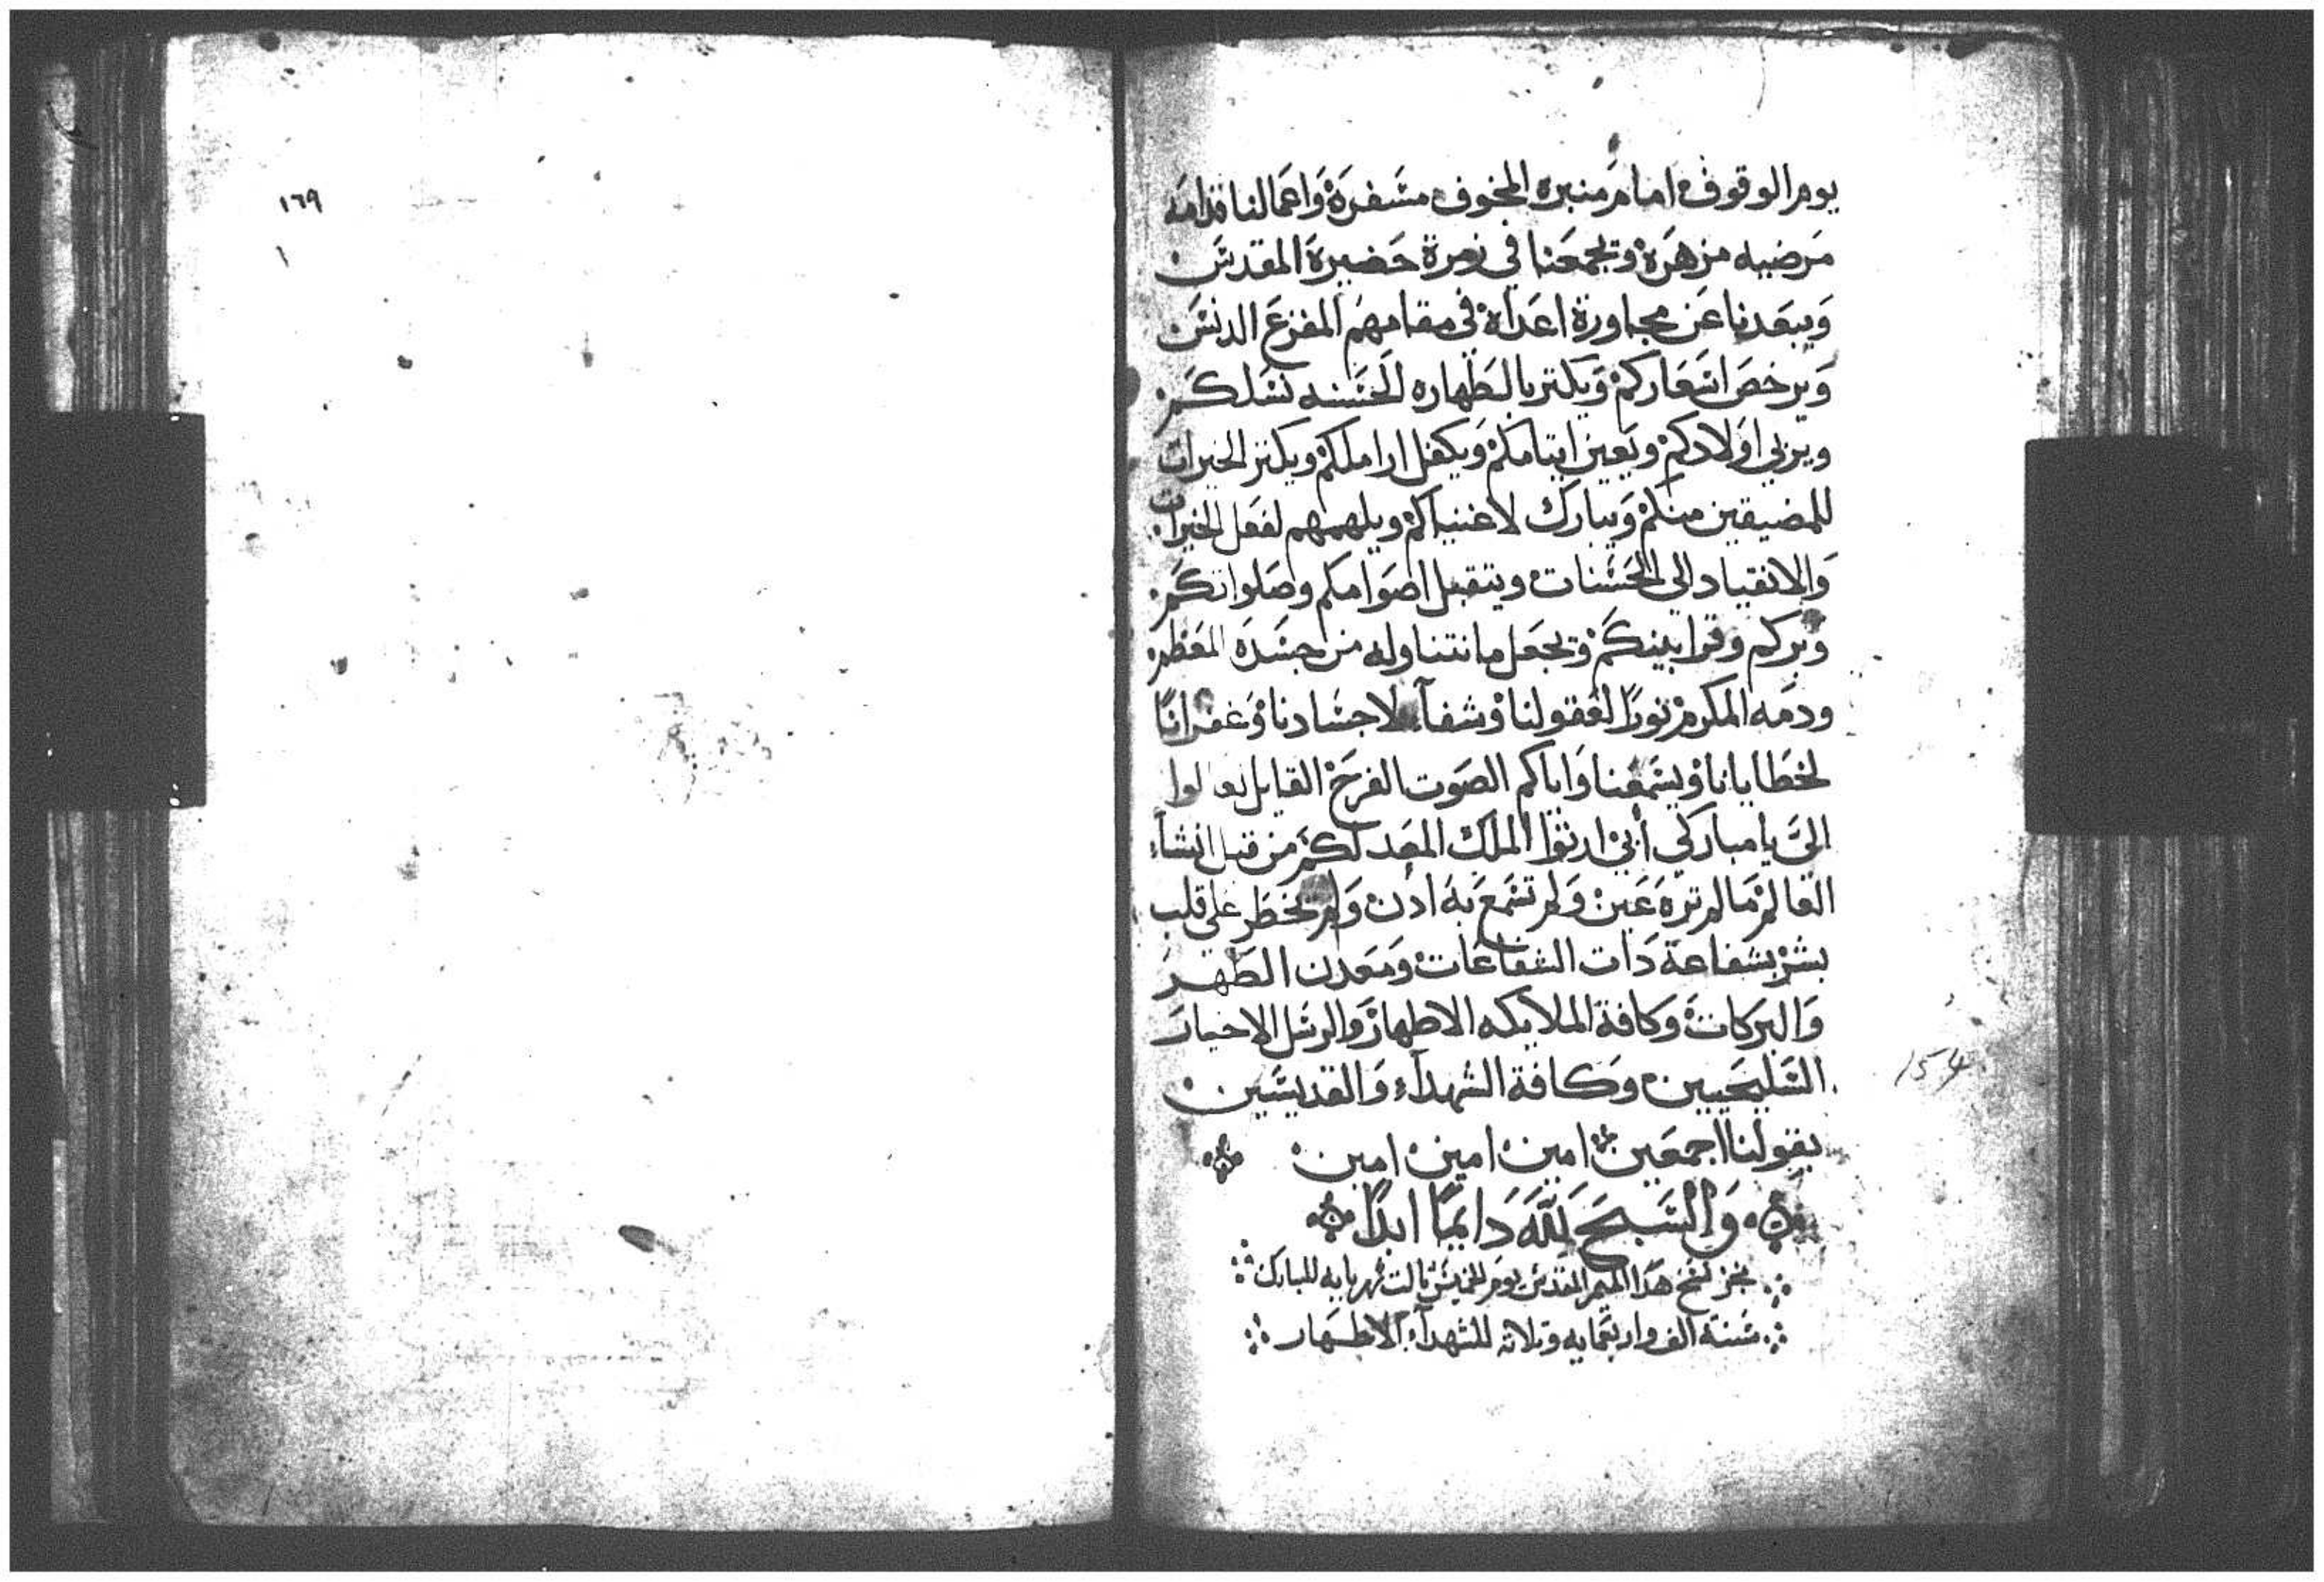 يوم الوقوف امام منبره المخوف مسفره واعمالنا قدامه
مرضيه مزهره ويجمعنا في زمرة حضيرة المقدسين
ويبعدنا عن مجاورة اعداه في مقامهم المفزع الدنس
ويرخص اسعاركم ويكتر بالطهاره الحسنه نسلكم
ويربي اولادكم ويعين ايتامكم ويكفل اراملكم ويكتر الخيرات
للمضيقين منكم ويبارك لاغنياكم ويلهمهم لفعل الخيرات
والانقياد الي الحسنات ويتقبل اصوامكم وصلواتكم
وبركم وقرابينكم ويجعل ما نتناوله من جسده المعظم
ودمه المكرم نورًا لعقولنا وشفآء لاجسادنا وغفرانًا
لخطايانا ويسمعنا واياكم الصوت الفرح القايل تعالوا
اليّ يا مباركي ابي ارثوا الملك المعد لكم من قبل انشاء
العالم ما لم تره عين ولم تسمع به ادن ولم يخطر علي قلب
بشر بشفاعة دات الشفاعات ومعدن الطهر
والبركات وكافة الملايكه الاطهار والرسل الاخيار
السليحيين وكافة الشهدآء والقديسين
بقولنا اجمعين امين امين امين
والسبح لله دايمًا ابدًا
نجز نسخ هدا الميمر المقدس يوم الخميس تالت شهر بابه المبارك
سنة الف واربعمايه وتلاته للشهدآء الاطهار
154
١٦٩
١